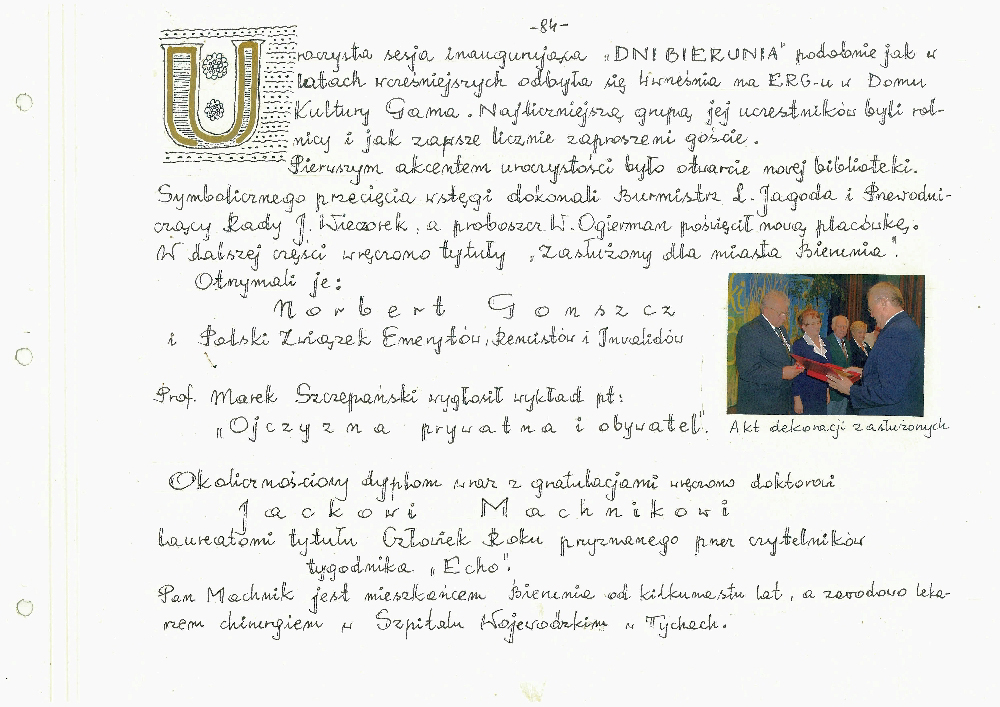 -84-
Uroczysta sesja inaugurująca „DNI BIERUNIA" podobnie jak w
latach wcześniejszych odbyła się 4 września na ERG-u w Domu
Kultury Gama. Najliczniejszą grupą jej uczestników byli rol-
nicy i jak zawsze licznie zaproszeni goście.
Pierwszym akcentem uroczystości było otwarcie nowej biblioteki.
Symbolicznego przecięcia wstęgi dokonali Burmistrz L. Jagoda i Przewodni-
czący Rady J. Wieczorek, a proboszcz W. Ogierman poświęcił nową placówkę.
W dalszej części wręczono tytuły „Zasłużony dla miasta Bierunia".
Otrzymali je:
Norbert Gonszcz
i Polski Związek Emerytów, Rencistów i Inwalidów
Prof. Marek Szczepański wygłosił wykład pt:
„Ojczyzna prywatna i obywatel".
Akt dekoracji zasłużonych
Okolicznościowy dyplom wraz z gratulacjami wręczono doktorowi
Jackowi Machnikowi
Laureatomi tytułu Człowiek Roku przyznanego przez czytelników
tygodnika „Echo".
Pan Machnik jest mieszkańcem Bierunia od kilkunastu lat, a zawodowo leka-
rzem chirurgiem w Szpitalu Wojewódzkim w Tychach.